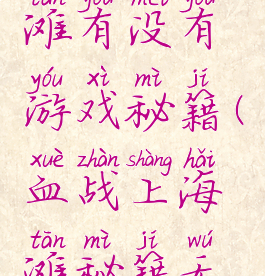 tān yǒu méi yǒu
滩有没有
yóu xì mì jí
游戏秘籍(
xuè zhàn shàng hǎi
血战上海
tān mì jí wú
滩秘籍无